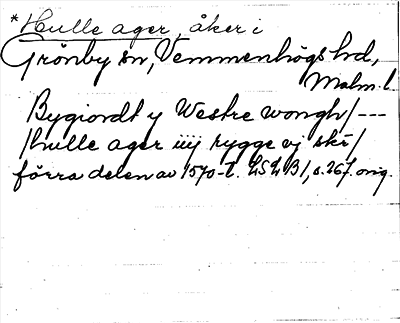 *Hulle ager, åker i
Grönby sn, Vemmenhögs hd,
Malm. l.
Bygiordt y Westre wongh/---
Hulle ager iiij rygge vj skr/
förra delen av 1570-t. LSLB1, s. 267. orig.